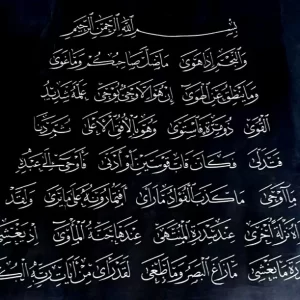 بسم الله الرحمن الرحيم
والنجم إذا هوى ما ضل صاحبكم وما غوى
وما ينطق عن الهوى إن هو إلا وحي يوحى علمه شديد
القوى ذو مرة فاستوى وهو بالأفق الأعلى ثم دنا
فتدلى فكان قاب قوسين أو أدنى فأوحى إلى عبده
ما أوحى ما كذب الفؤاد ما رأى أفتمارونه على ما يرى ولقد
نزلة أخرى عند سدرة المنتهى عندها جنة المأوى إذ يغشى
ما يغشى ما زاغ البصر وما طغى لقد رأى من آيات ربه